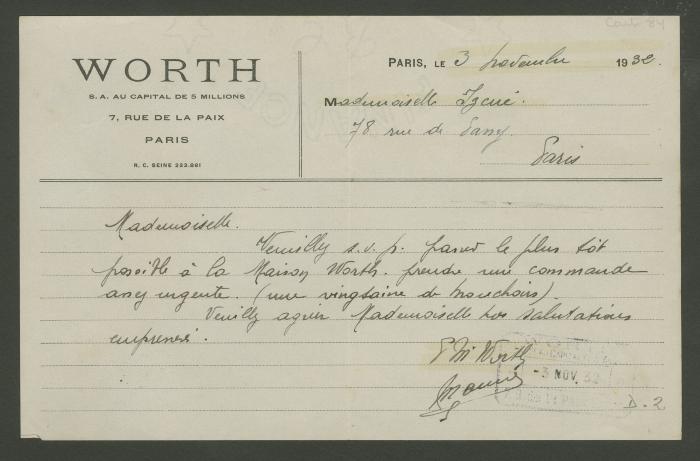 Cart 84
WORTH
S. A. AU CAPITAL DE 5 MILLIONS
7, RUE DE LA PAIX
PARIS
R. C. SEINE 223.881
PARIS, LE 3 novembre 1932.
Mademoiselle
78 rue de Passy.
Paris
Mademoiselle.
Veuillez s.v.p. passer le plus tôt
possible à la Maison Worth. prendre une commande
assez urgente. (une vingtaine de mouchoirs).
Veuillez agréer Mademoiselle nos salutations
empressées.
Worth
-3 NOV. 32
D. 2